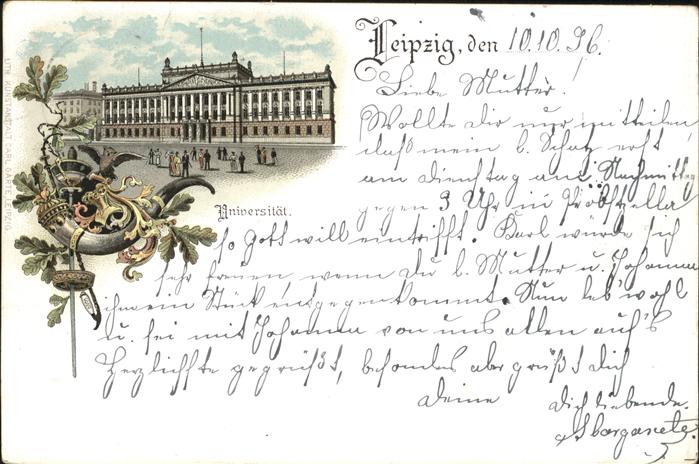 Leipzig, den 10.10.96.
Liebe Mutter!
Wollte Dir nur mitteilen
daß mein l. Schatz erst
am Dienstag auf Nachmittag
gegen 3 Uhr in Probstzella
so Gott will eintrifft. Karl würde sich
sehr freuen, wenn du l. Mutter u. Johanna
ihm ein Stück entgegenkommt. Nun leb wohl
u. sei mit Johanna von uns allen auf's
Herzlichste gegrüßt, besondes aber grüßt Dich
Deine Dich liebende
Margarete.
Universität.
LITH. KUNSTANSTALT CARL GARTE, LEIPZIG.